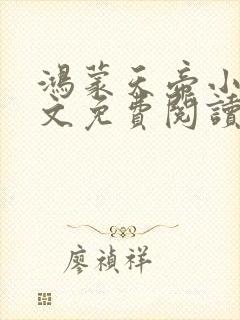 鴻蒙天帝小
文免費閱讀
廖禎祥